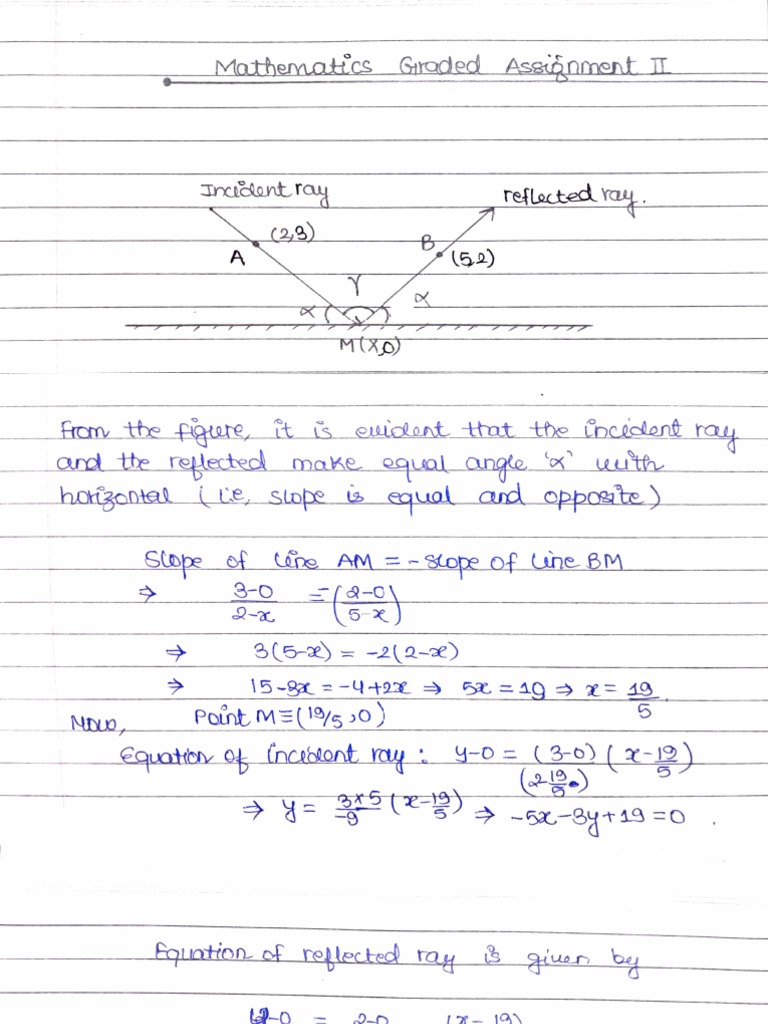 Mathematics Graded Assignment II
Incident ray
reflected ray.
A
(2,3)
B
(5,2)
γ
α
α
M(x,0)
From the figure, it is evident that the incident ray
and the reflected make equal angle 'α' with
horizontal (i.e, slope is equal and opposite)
Slope of line AM = - slope of line BM
⇒ (3-0)/(2-x) = -((2-0)/(5-x))
⇒ 3(5-x) = -2(2-x)
⇒ 15-3x = -4+2x ⇒ 5x = 19 ⇒ x = 19/5.
Now, Point M ≡ (19/5, 0)
Equation of incident ray : y-0 = (3-0)/(2-19/5) (x-19/5)
⇒ y = (3×5)/-9 (x-19/5) ⇒ -5x-3y+19 = 0 .
Equation of reflected ray is given by